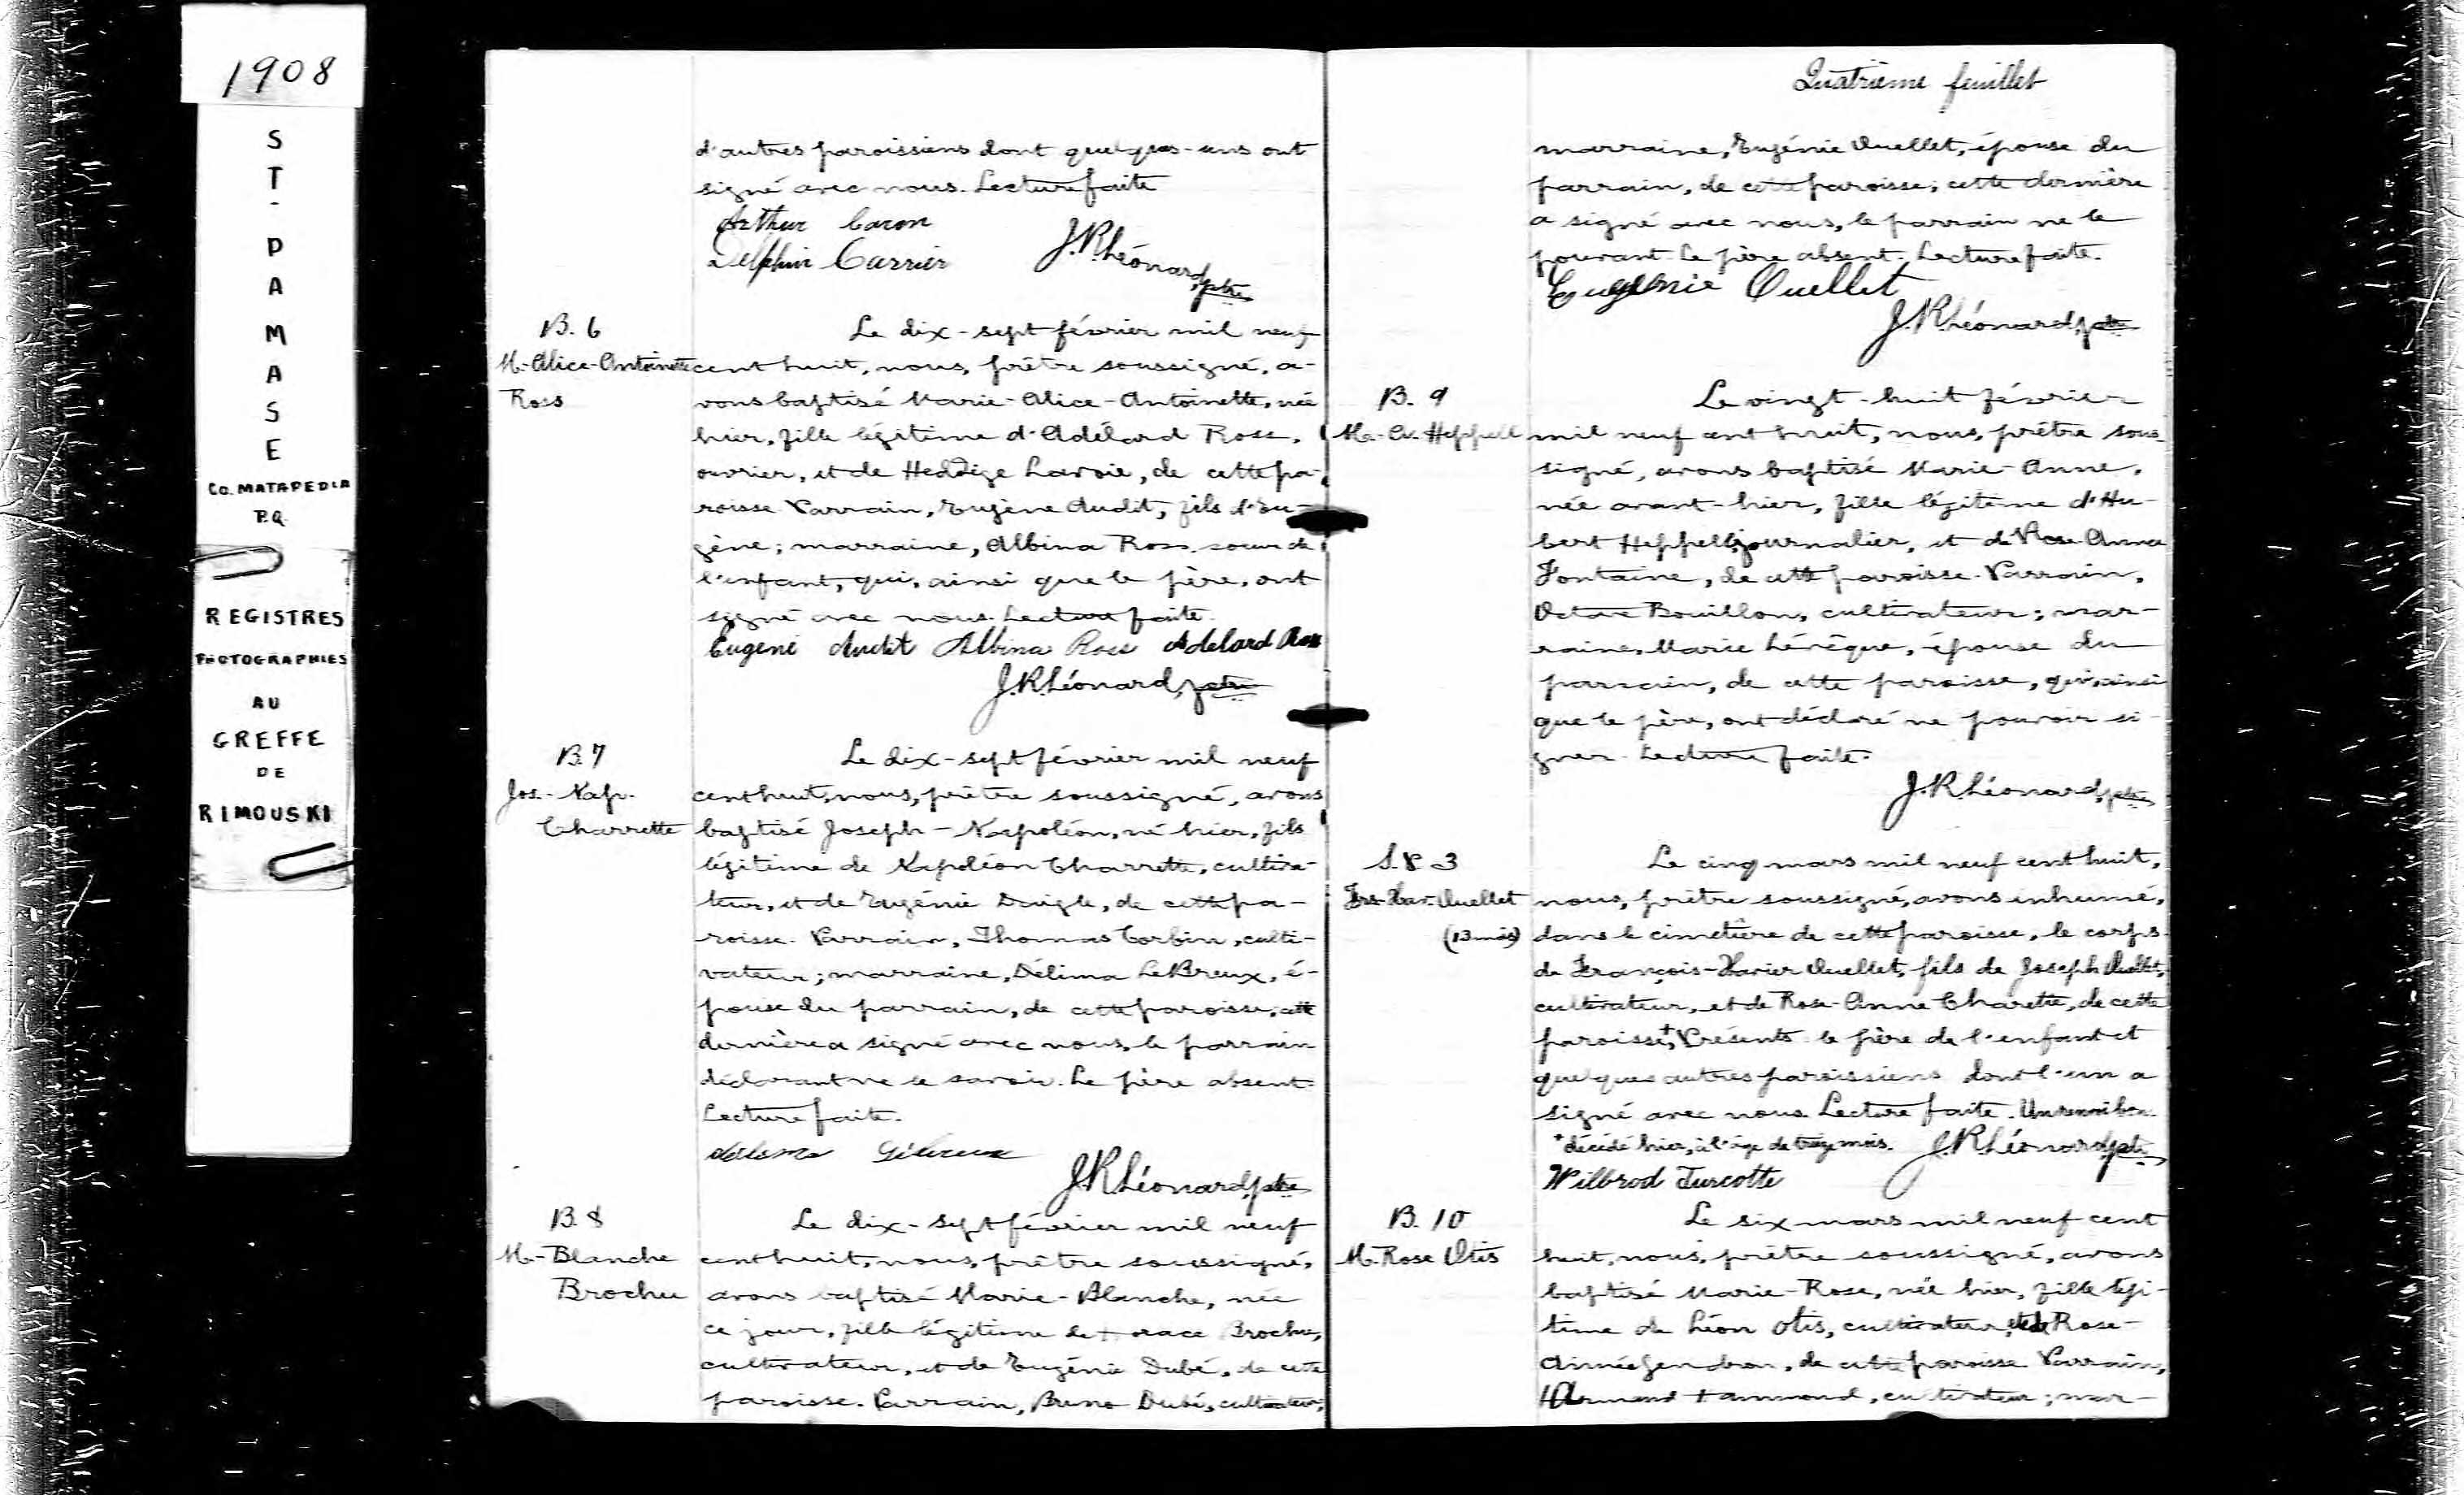 1908
S
T
-
D
A
M
A
S
E
CO. MATAPEDIA
P.Q.
REGISTRES
PHOTOGRAPHIES
AU
GREFFE
DE
RIMOUSKI
d'autres paroissiens dont quelques-uns ont
signé avec nous. Lecture faite
Arthur Caron
Delphin Carrier J.R. Léonard, ptre
B. 6
M.-Alice-Antoinette
Ross
Le dix-sept février mil neuf
cent huit, nous, prêtre soussigné, a-
vons baptisé Marie-Alice-Antoinette, née
hier, fille légitime d'Adélard Ross,
ouvrier, et de Heddige Lavoie, de cette pa-
roisse. Parrain, Eugène Audit, fils d'Eu-
gène; marraine, Albina Ross, soeur de
l'enfant, qui, ainsi que le père, ont
signé avec nous. Lecture faite.
Eugene Audit Albina Ross Adelard Ross
J.R. Léonard, ptre
B. 7
Jos.-Nap.
Charrette
Le dix-sept février mil neuf
cent huit, nous, prêtre soussigné, avons
baptisé Joseph-Napoléon, né hier, fils
légitime de Napoléon Charrette, cultiva-
teur, et de Eugénie Daigle, de cette pa-
roisse. Parrain, Thomas Corbin, culti-
vateur; marraine, Délima LeBreux, é-
pouse du parrain, de cette paroisse; cette
dernière a signé avec nous, le parrain
déclarant ne le savoir. Le père absent.
Lecture faite.
J.R. Léonard, ptre
B. 8
M.-Blanche
Brochu
Le dix-sept février mil neuf
cent huit, nous, prêtre soussigné,
avons baptisé Marie-Blanche, née
ce jour, fille légitime de Horace Brochu,
cultivateur, et de Eugénie Dubé, de cette
paroisse. Parrain, Bruno Dubé, cultivateur;
Quatrième feuillet
marraine, Eugénie Ouellet, épouse du
parrain, de cette paroisse; cette dernière
a signé avec nous, le parrain ne le
pouvant. Le père absent. Lecture faite.
Eugénie Ouellet
J.R. Léonard, ptre
B. 9
M.-A. Heppell
Le vingt-huit février
mil neuf cent huit, nous, prêtre sous-
signé, avons baptisé Marie-Anne,
née avant-hier, fille légitime d'Hu-
bert Heppell, journalier, et de Rose-Anna
Fontaine, de cette paroisse. Parrain,
Octave Bouillon, cultivateur; mar-
raine, Marie Lévêque, épouse du
parrain, de cette paroisse, qui, ainsi
que le père, ont déclaré ne pouvoir si-
gner. Lecture faite.
J.R. Léonard, ptre
S. 3
Frs-Xav. Ouellet
(13 mois)
Le cinq mars mil neuf cent huit,
nous, prêtre soussigné, avons inhumé,
dans le cimetière de cette paroisse, le corps
de François-Xavier Ouellet, fils de Joseph Ouellet,
cultivateur, et de Rose-Anne Charette, de cette
paroisse,+ Présents le père de l'enfant et
quelques autres paroissiens dont l'un a
signé avec nous. Lecture faite. Un renvoi bon.
+décédé hier, à l'âge de treize mois. J.R. Léonard, ptre
Wilbrod Turcotte
B. 10
M. Rose Otis
Le six mars mil neuf cent
huit, nous, prêtre soussigné, avons
baptisé Marie-Rose, née hier, fille légi-
time de Léon Otis, cultivateur, et de Rose-
Aimée Gendron, de cette paroisse. Parrain,
Armand Hammond, cultivateur; mar-